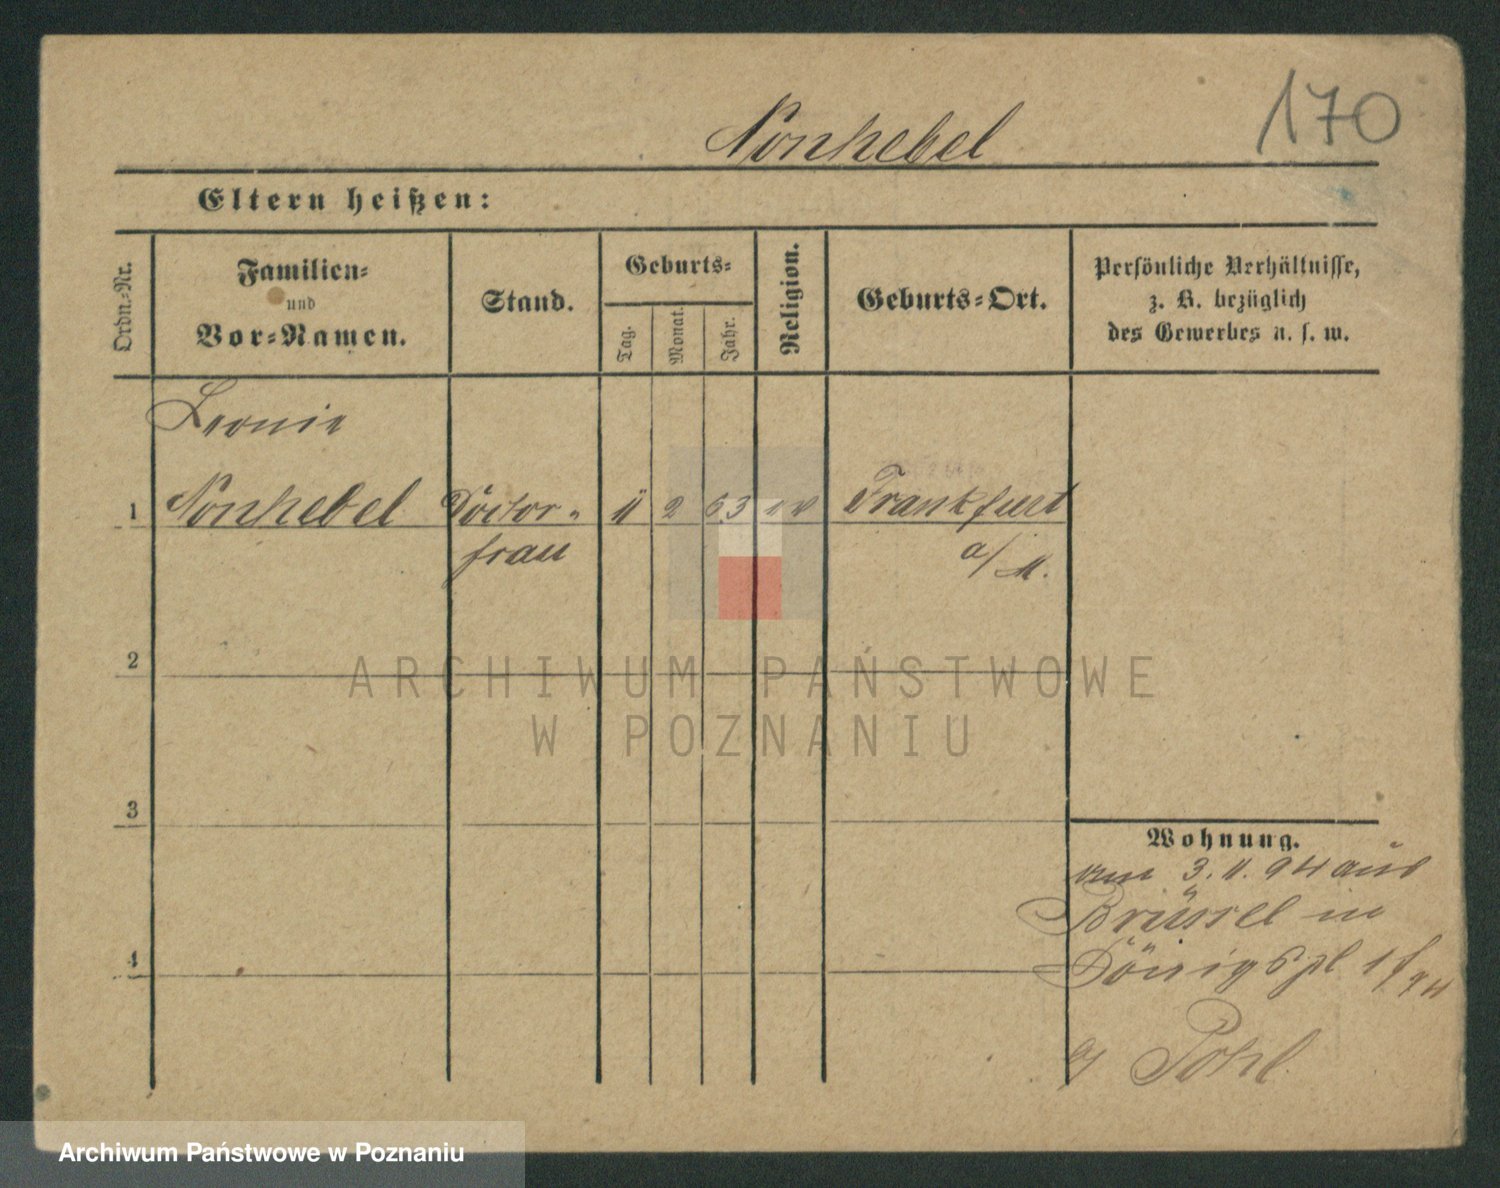 170
Nonhebel
Eltern heißen:
Ordn.-Nr.
Familien-
und
Vor-Namen.
Stand.
Geburts-
Tag.
Monat.
Jahr.
Religion.
Geburts-Ort.
Persönliche Verhältnisse,
z. B. bezüglich
des Gewerbes u. s. w.
Leonie
1 Nonhebel Doctor- 11 2 63 ev Frankfurt
frau a/M.
2
3
4
Wohnung.
am 3. 11. 94 aus
Brüssel in
Königspl 1
b/ Pohl
ARCHIWUM PAŃSTWOWE
W POZNANIU
Archiwum Państwowe w Poznaniu